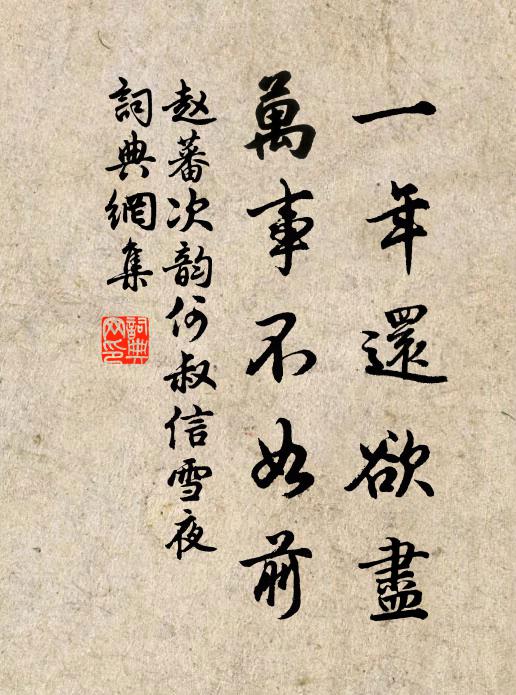 一年還欲盡
萬事不如前
赵蕃次韵何叔信雪夜
詞典網集
詞典
网印